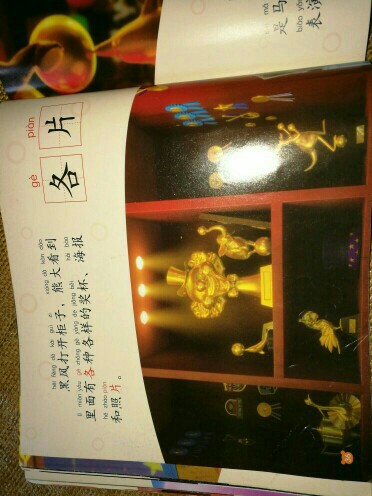 gè piàn
各片
hēi fēng dǎ kāi guì zi xióng dà kàn dào
黑风打开柜子，熊大看到
lǐ miàn yǒu gè zhǒng gè yàng de jiǎng bēi hǎi bào
里面有各种各样的奖杯、海报
hé zhào piàn
和照片。
mǎ
是马
biǎo yǎn
表演